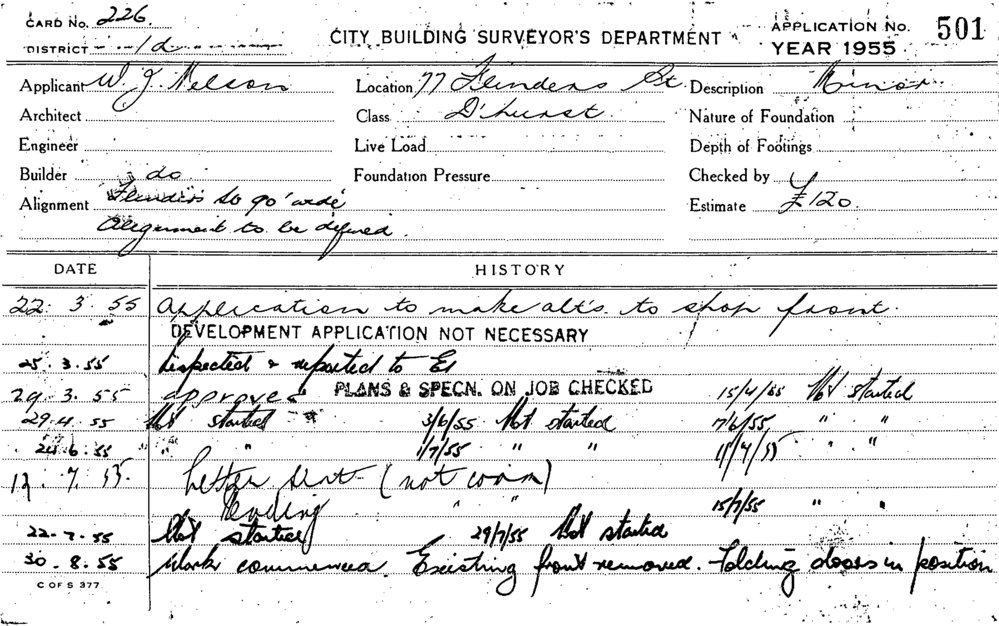 CARD No. 226
DISTRICT 1d
CITY BUILDING SURVEYOR'S DEPARTMENT
APPLICATION No. 501
YEAR 1955
Applicant W. J. Nelson
Location 77 Flinders St.
Description Minor
Architect
Class D'hurst
Nature of Foundation
Engineer
Live Load
Depth of Footings
Builder do
Foundation Pressure
Checked by
Alignment Flinders St 90' wide
Estimate £120
Alignment to be defined.
DATE HISTORY
22. 3. 55 Application to make alts. to shop front
DEVELOPMENT APPLICATION NOT NECESSARY
25. 3. 55 Inspected & reported to
29. 3. 55 approved PLANS & SPECN. ON JOB CHECKED 15/4/55 Not started
29. 4. 55 Not started 3/6/55 Not started 7/6/55 " "
24. 6. 55 " " 1/7/55 " " 11/7/55 " "
12. 7. 55. Letter sent (not comm)
Pending " " 15/7/55 " "
22. 7. 55 Not started 29/7/55 Not started
30. 8. 55 Work commenced. Existing front removed. Folding doors in position
C OF S 377